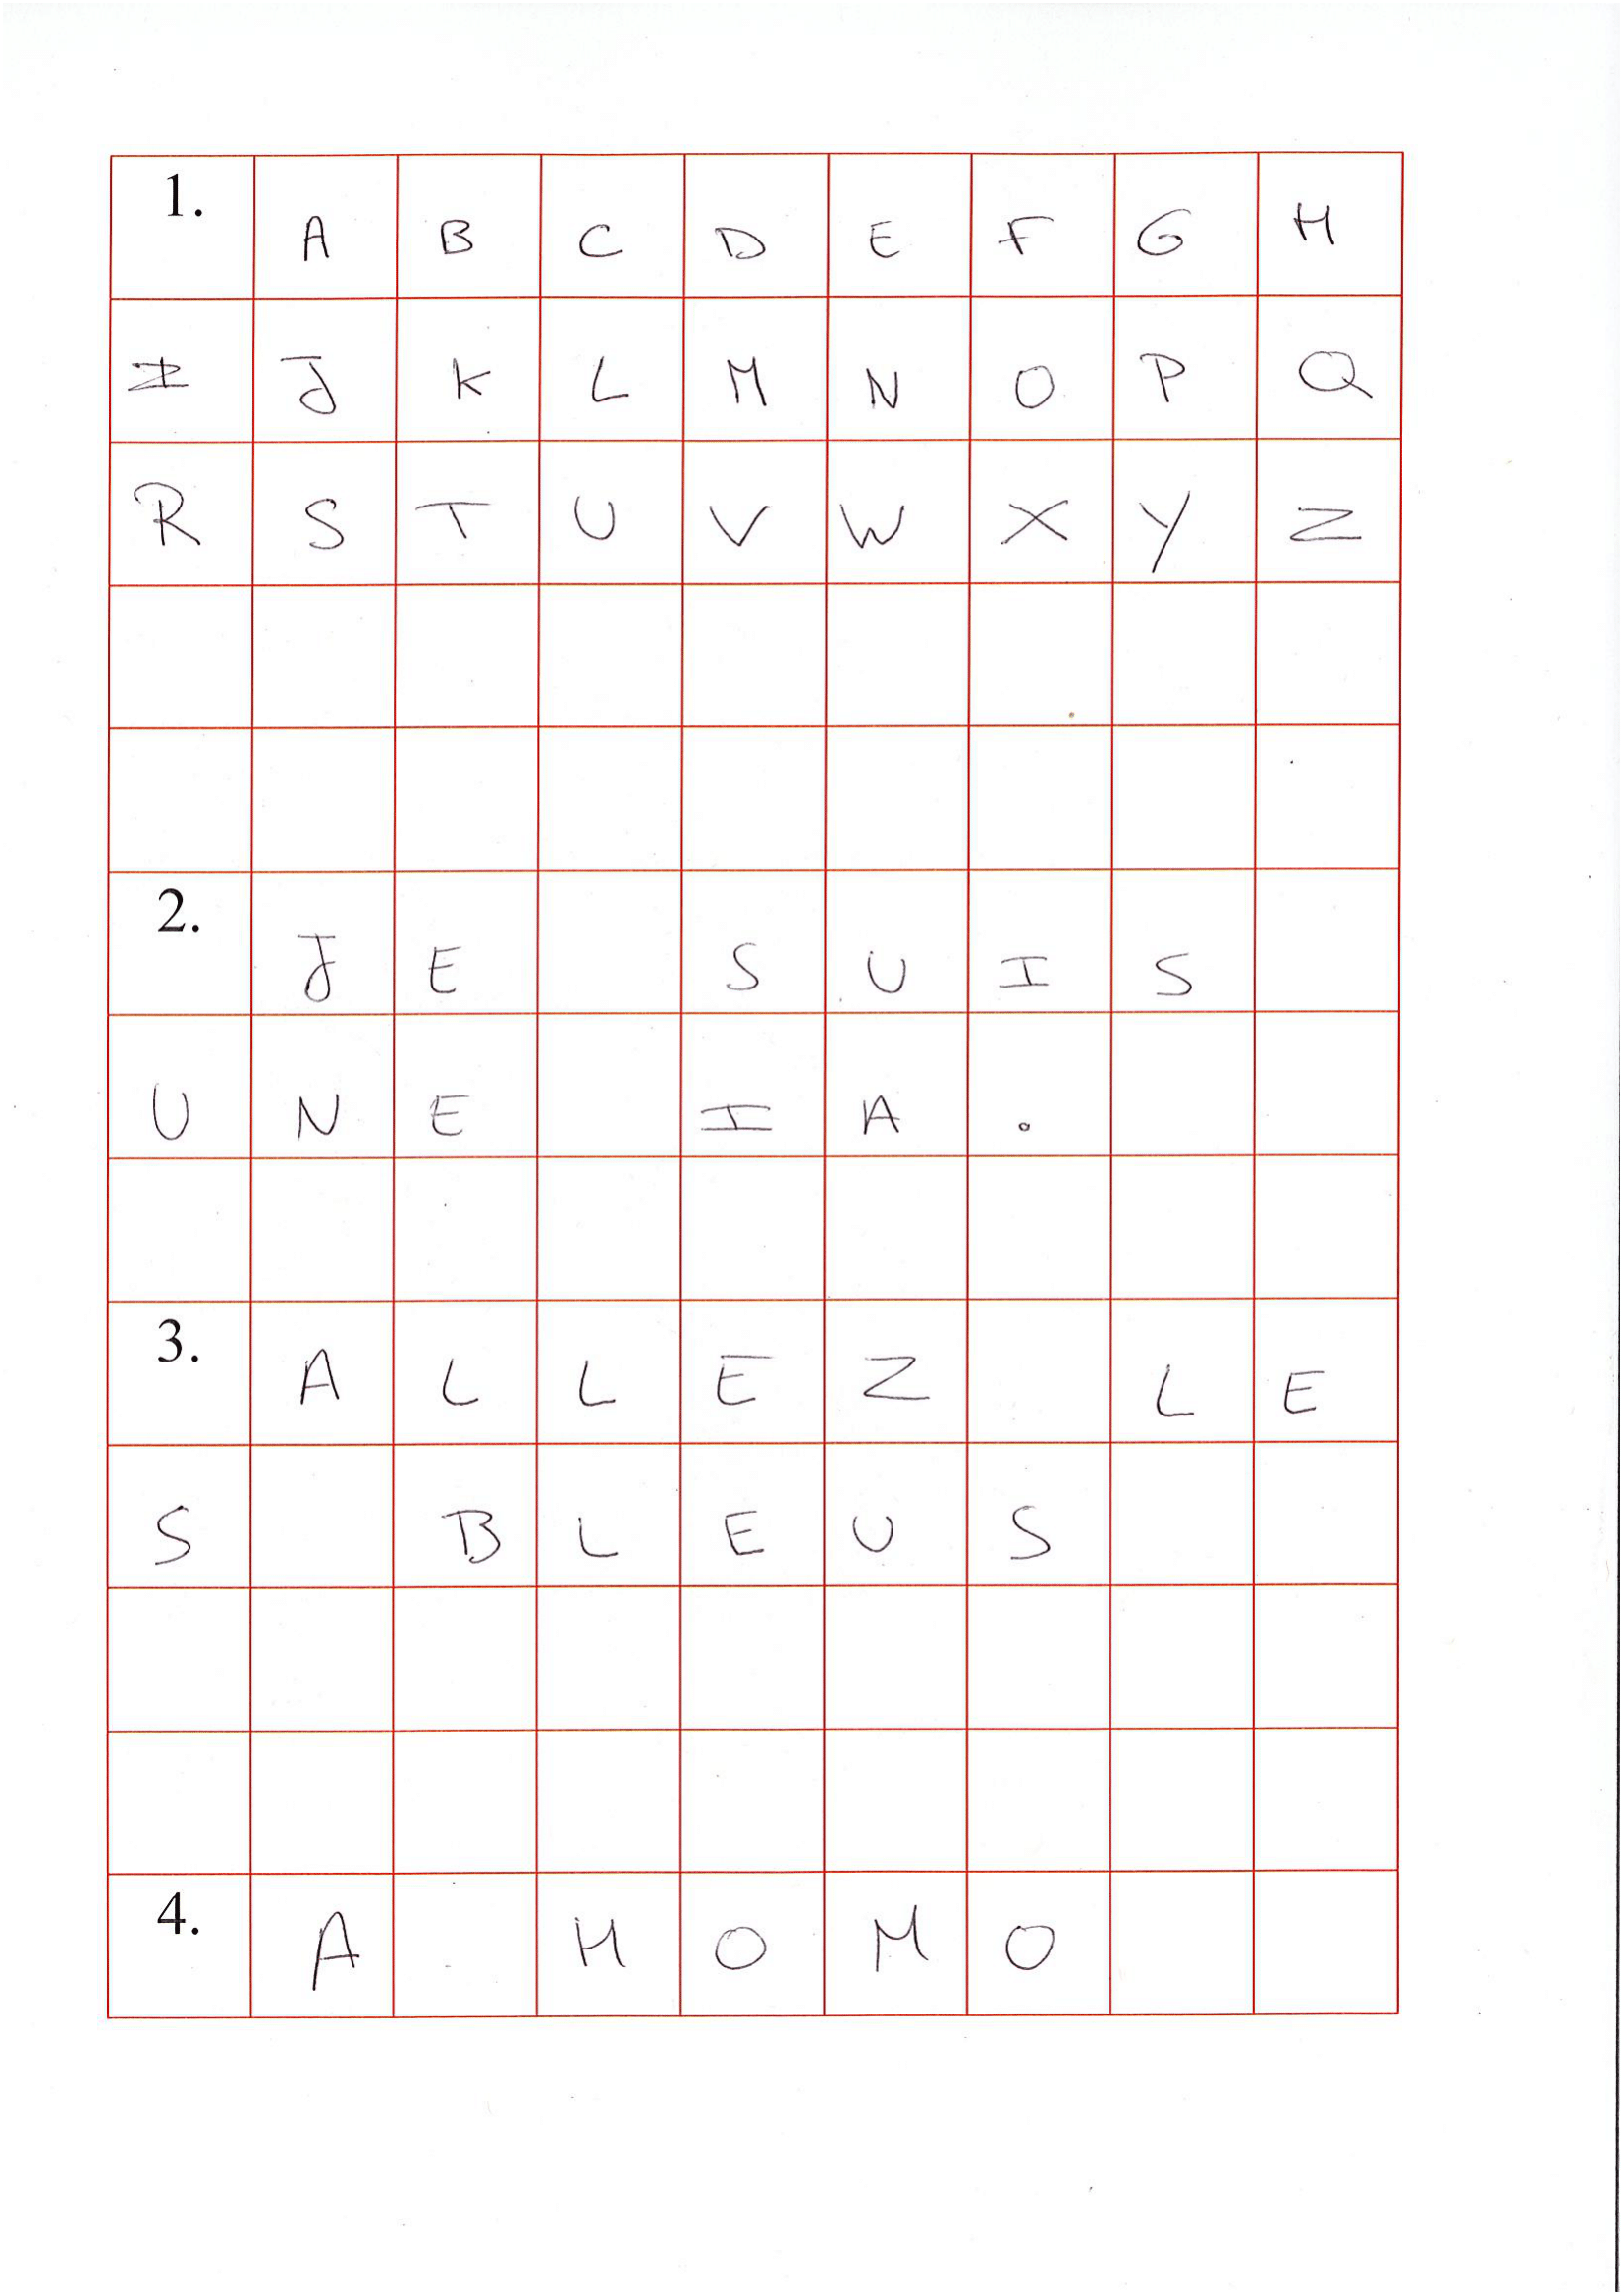 1. A B C D E F G H
I J K L M N O P Q
R S T U V W X Y Z
2. J E S U I S
U N E I A .
3. A L L E Z L E
S B L E U S
4. A H O M O